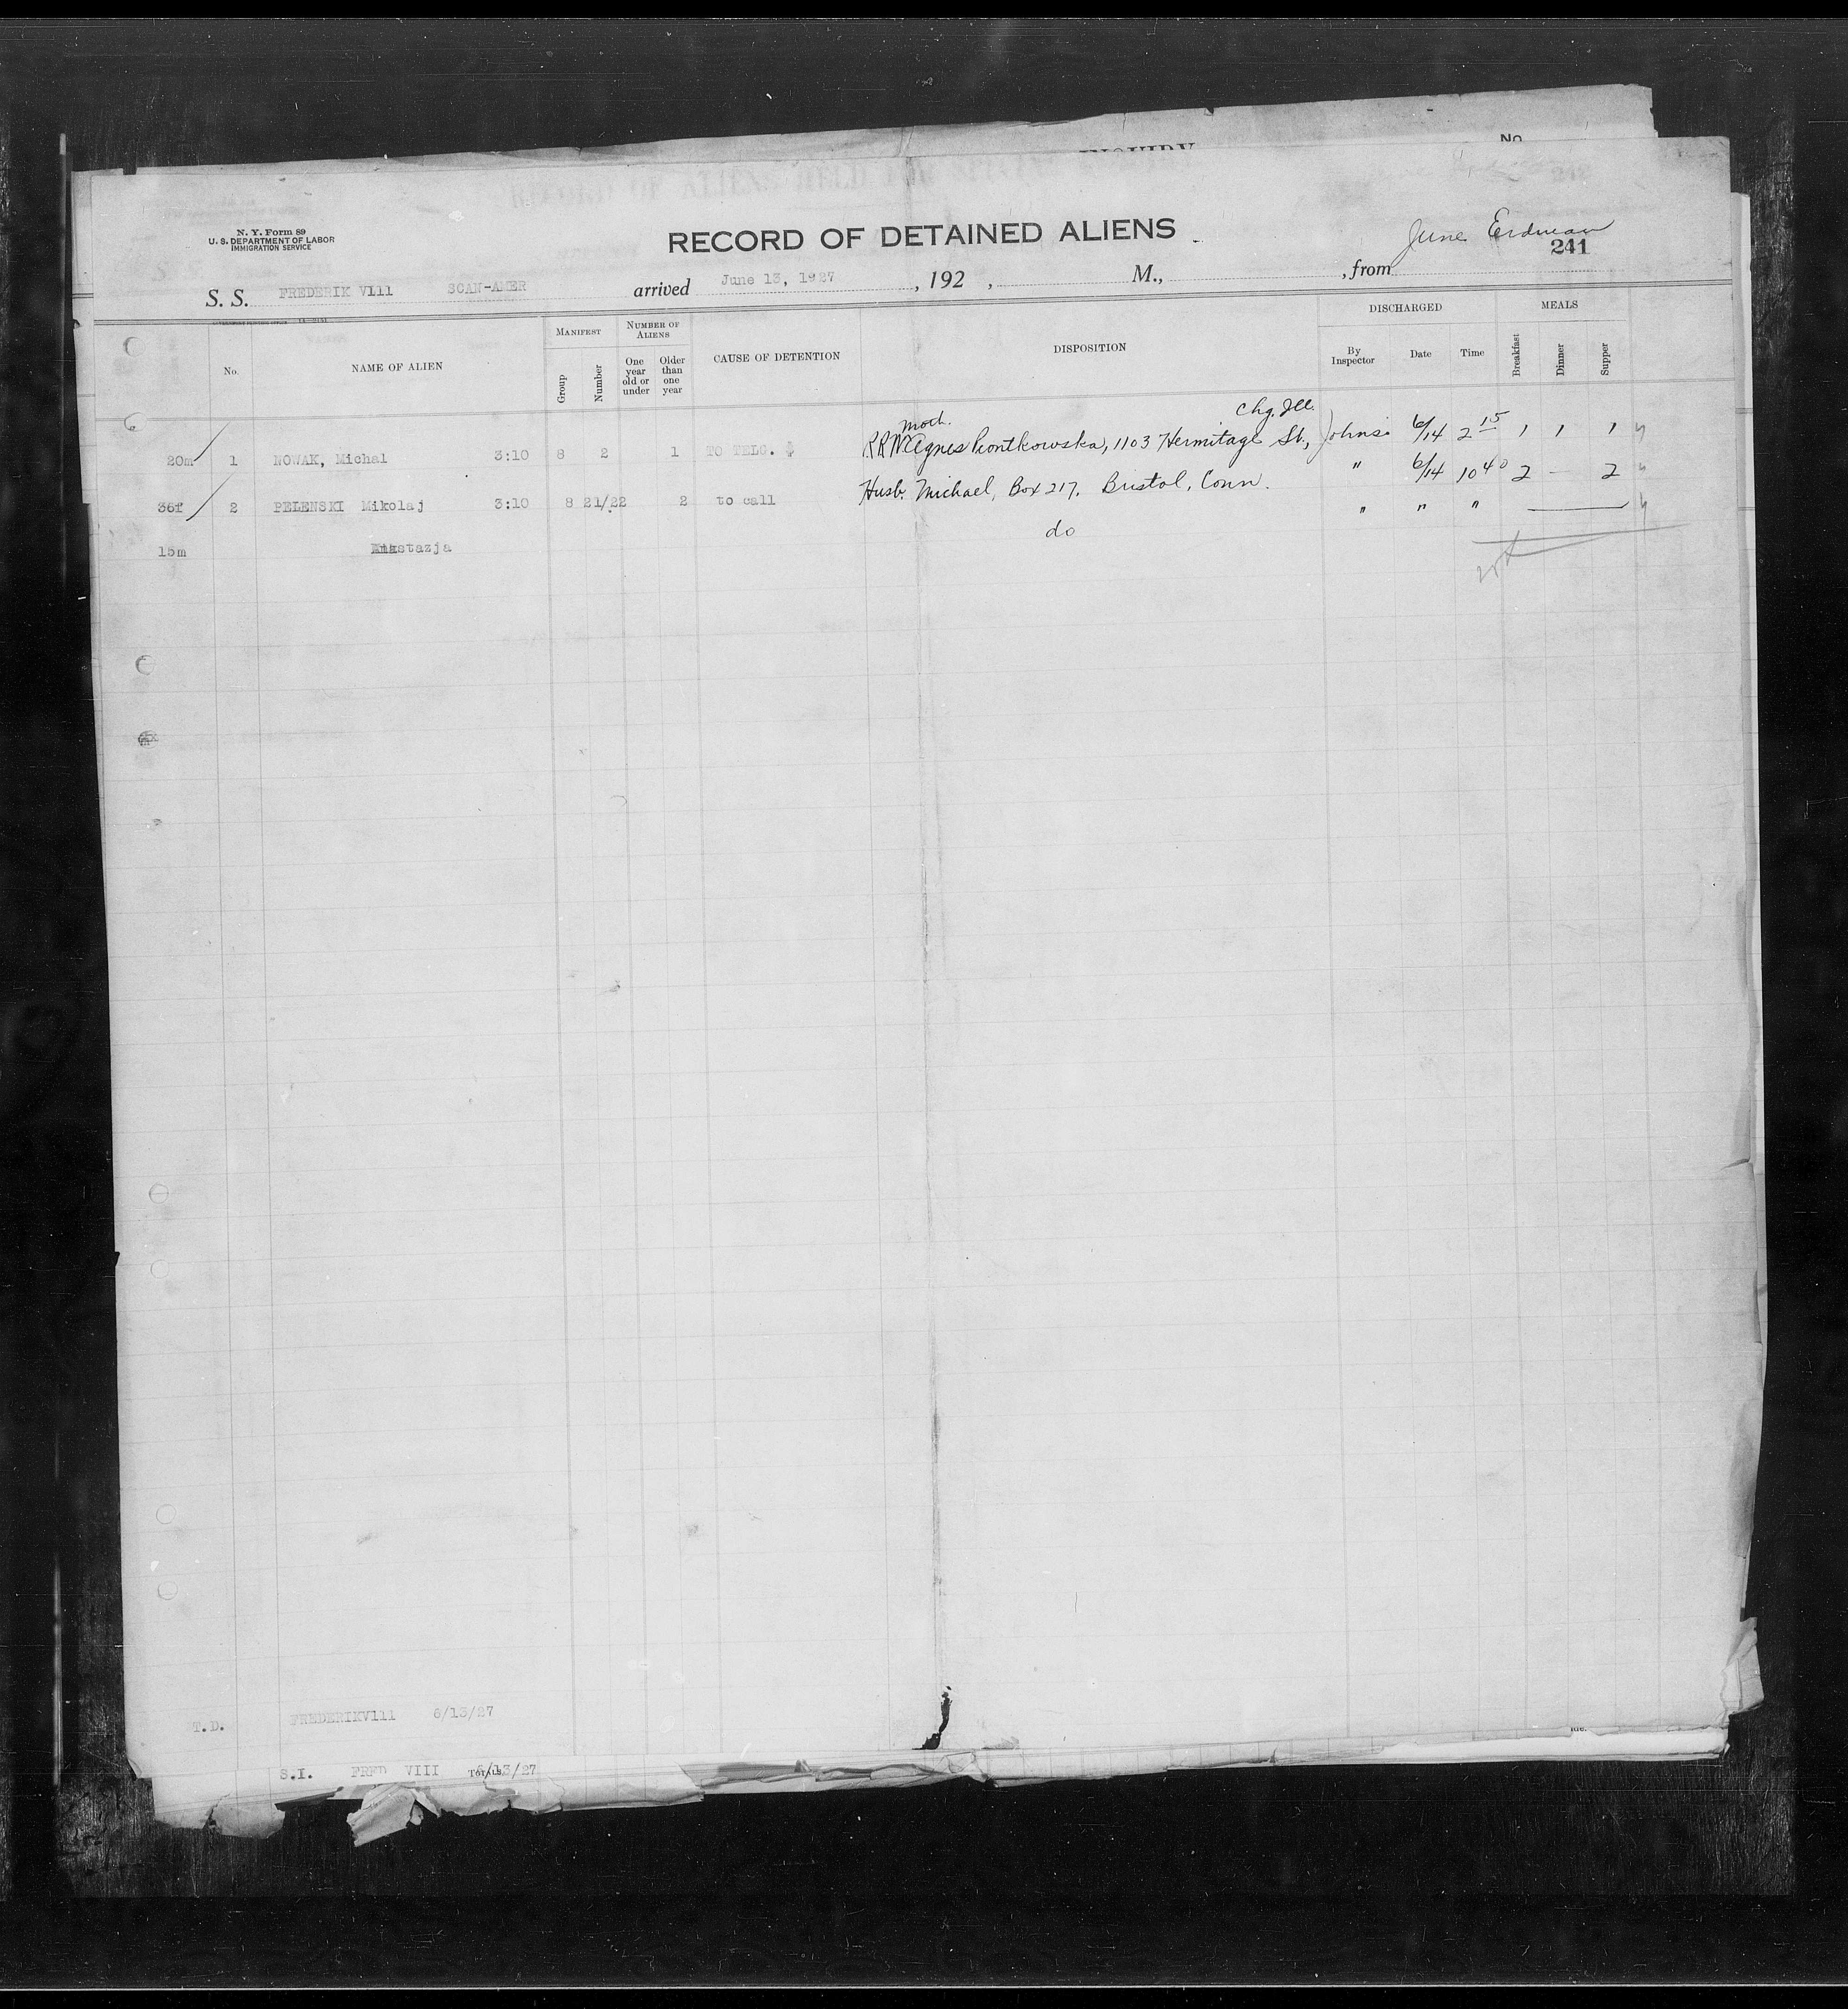 INQUIRY No.
N. Y. Form 89
U. S. DEPARTMENT OF LABOR
IMMIGRATION SERVICE
RECORD OF DETAINED ALIENS
June Erdman
241
S. S. FREDERIK V111 SCAN-AMER arrived June 13, 1927, 192 , M., , from
No. NAME OF ALIEN MANIFEST Group Number NUMBER OF ALIENS One year old or under Older than one year CAUSE OF DETENTION DISPOSITION DISCHARGED By Inspector Date Time MEALS Breakfast Dinner Supper
moth. Chg. Ill.
20m 1 NOWAK, Michal 3:10 8 2 1 TO TELG. $ RR Agnes Piontkowska, 1103 Hermitage St., Johns 6/14 2 15 1 1 1
36f 2 PELENSKI Mikolaj 3:10 8 21/22 2 to call Husb. Michael, Box 217. Bristol, Conn. " 6/14 10 40 2 — 2
15m Anastazja do " " "
T.D. FREDERIKV111 6/13/27
S.I. FRED VIII TOTALS 6/13/27